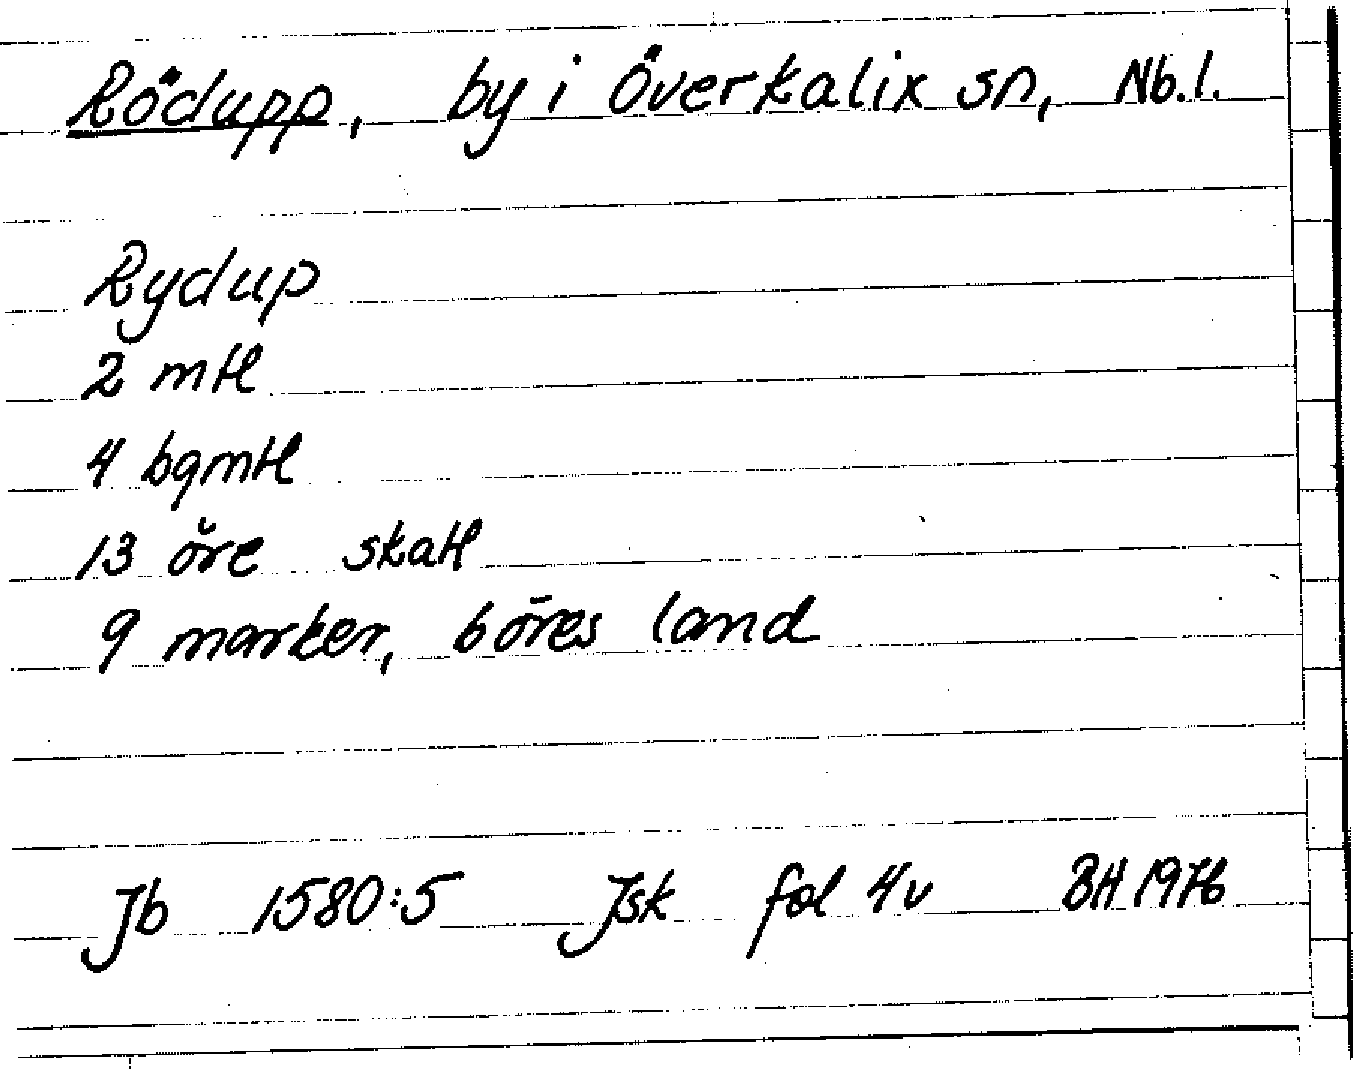 Rödupp, by i Överkalix sn, Nb.l.
Rydup
2 mtl
4 bgmtl
13 öre skatt
9 marker, 6 öres land
Jb 1580:5 Jsk fol 4v BH 1976